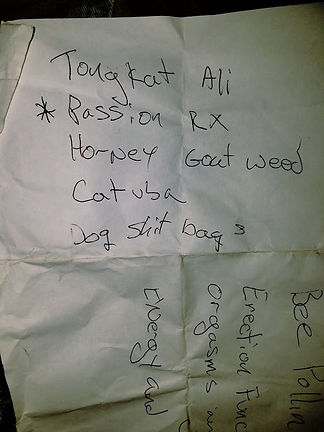 Tongkat Ali
* Passion RX
Horney Goat weed
Catuba
Dog shit bags
Bee Pollin
Erection Func
Orgasms in
Energy and